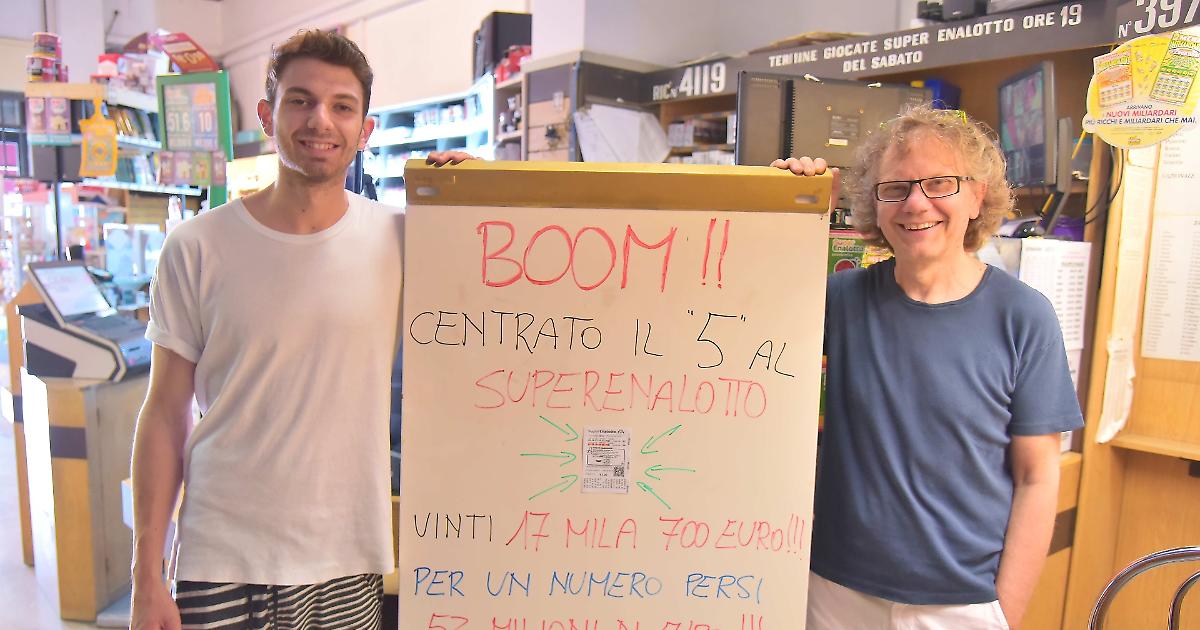 TERMINE GIOCATE SUPER ENALOTTO ORE 19
DEL SABATO
RIC. N° 4119
N° 397
ARRIVANO
NUOVI MILIARDARI
PIÙ RICCHI E MILIARDARI CHE MAI.
BOOM!!
CENTRATO IL "5" AL
SUPERENALOTTO
VINTI 17 MILA 700 EURO!!!
PER UN NUMERO PERSI
52 MILIONI DI EURO!!!